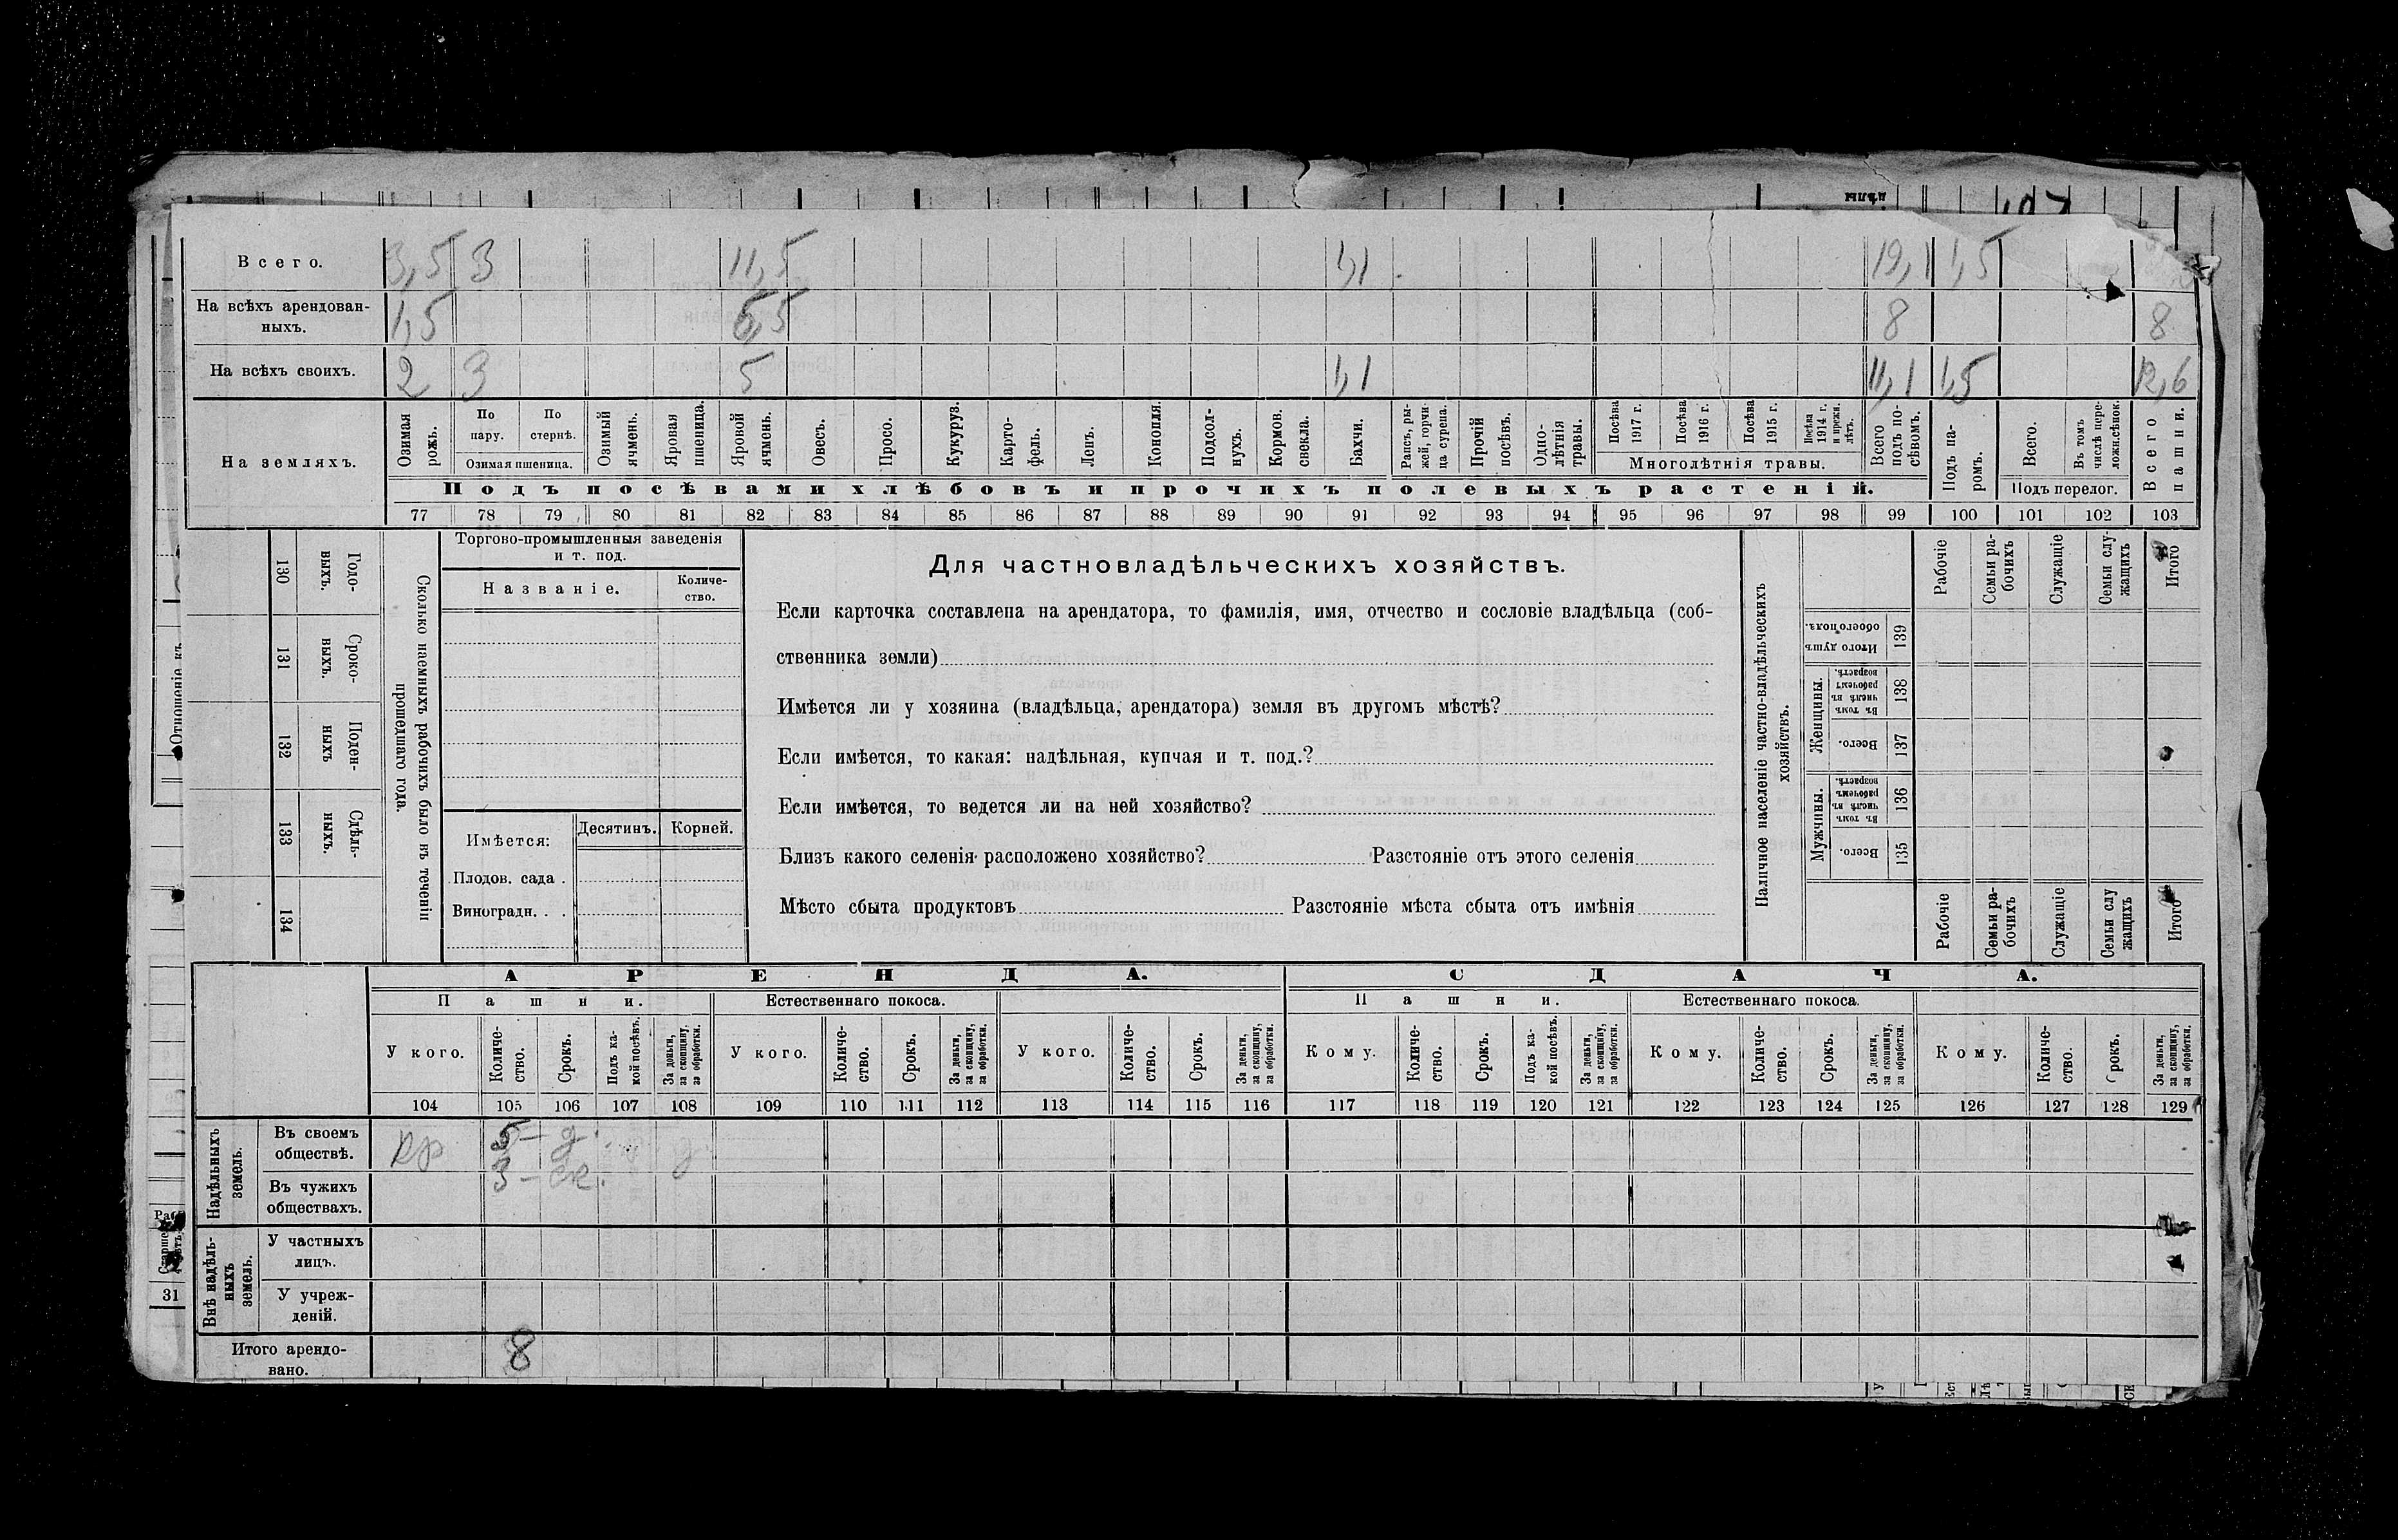 дѣлы
Всего. 3,5 3 11,5 1,1 19,1 1,5
На всѣхъ арендован-
ныхъ. 1,5 6,5 8 8
На всѣхъ своихъ. 2 3 5 1,1 11,1 1,5 12,6
На земляхъ.
Озимая рожь.
По пару.
По стернѣ.
Озимая пшеница.
Озимый ячмень.
Яровая пшеница.
Яровой ячмень.
Овесъ.
Просо.
Кукуруз.
Карто-
фель.
Ленъ.
Конопля.
Подсол-
нухъ.
Кормов. свекла.
Бахчи.
Рапсъ, ры-
жей, горчи-
ца сурепа.
Прочій посѣвъ.
Одно-
лѣтнія травы.
Посѣва 1917 г.
Посѣва 1916 г.
Посѣва 1915 г.
Посѣва 1914 г. и прежн. лѣтъ.
Многолѣтнія травы.
Всего подъ по-
сѣвомъ.
Подъ па-
ромъ.
Всего.
Въ томъ числѣ пере-
ложн.сѣнок.
Подъ перелог.
Всего пашни.
Подъ посѣвами хлѣбовъ и прочихъ полевыхъ растеній.
77 78 79 80 81 82 83 84 85 86 87 88 89 90 91 92 93 94 95 96 97 98 99 100 101 102 103
Отношеніе къ
130 Годо-
выхъ.
131 Сроко-
выхъ.
132 Поден-
ныхъ
133 Сдѣль-
ныхъ.
134
Сколько наемныхъ рабочихъ было въ теченіи
прошедшаго года.
Торгово-промышленныя заведенія
и т. под.
Названіе.
Количе-
ство.
Имѣется:
Десятинъ.
Корней.
Плодов. сада .
Виноградн. . .
Для частновладѣльческихъ хозяйствъ.
Если карточка составлена на арендатора, то фамилія, имя, отчество и сословіе владѣльца (соб-
ственника земли)
Имѣется ли у хозяина (владѣльца, арендатора) земля въ другомъ мѣстѣ?
Если имѣется, то какая: надѣльная, купчая и т. под.?
Если имѣется, то ведется ли на ней хозяйство?
Близъ какого селенія расположено хозяйство? Разстояніе отъ этого селенія
Мѣсто сбыта продуктовъ Разстояніе мѣста сбыта отъ имѣнія
Наличное населеніе частно-владѣльческихъ
хозяйствъ.
Рабочіе
Семьи ра-
бочихъ
Служащіе
Семьи слу-
жащихъ
Итого
Итого душъ обоего пола. 139
Женщины.
Въ томъ числѣ въ рабочемъ возрастѣ. 138
Всего. 137
Мужчины.
Въ томъ числѣ въ рабочемъ возрастѣ. 136
Всего. 135
Рабочіе
Семьи ра-
бочихъ
Служащіе
Семьи слу
жащихъ
Итого
АРЕНДА.
СДАЧА.
Пашни.
Естественнаго покоса.
Пашни.
Естественнаго покоса.
У кого.
Количе-
ство.
Срокъ.
Подъ ка-
кой посѣвъ.
За деньги, за скопщину, за обработки.
У кого.
Количе-
ство.
Срокъ.
За деньги, за скопщину, за обработки.
У кого.
Количе-
ство.
Срокъ.
За деньги, за скопщину, за обработки.
Кому.
Количе-
ство.
Срокъ.
Подъ ка-
кой посѣвъ.
За деньги, за скопщину, за обработки.
Кому.
Количе-
ство.
Срокъ.
За деньги, за скопщину, за обработки.
Кому.
Количе-
ство.
Срокъ.
За деньги, за скопщину, за обработки.
104 105 106 107 108 109 110 111 112 113 114 115 116 117 118 119 120 121 122 123 124 125 126 127 128 129
Надѣльныхъ
земель.
Въ своемъ
обществѣ.
кр 5 – д.
3 – ск.
Въ чужихъ
обществахъ.
Внѣ надѣль-
ныхъ
земель.
У частныхъ
лицъ.
У учреж-
деній.
Итого арендо-
вано. 8
31